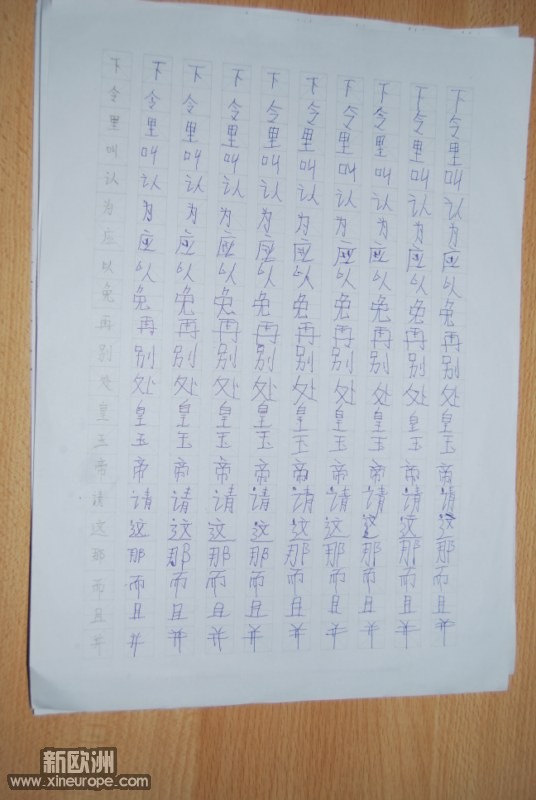 下令里叫认为应以免再别处皇玉帝请这那而且并
下令里叫认为应以免再别处皇玉帝请这那而且并
下令里叫认为应以免再别处皇玉帝请这那而且并
下令里叫认为应以免再别处皇玉帝请这那而且并
下令里叫认为应以免再别处皇玉帝请这那而且并
下令里叫认为应以免再别处皇玉帝请这那而且并
下令里叫认为应以免再别处皇玉帝请这那而且并
下令里叫认为应以免再别处皇玉帝请这那而且并
下令里叫认为应以免再别处皇玉帝请这那而且并
下令里叫认为应以免再别处皇玉帝请这那而且并
新欧洲
www.xineurope.com